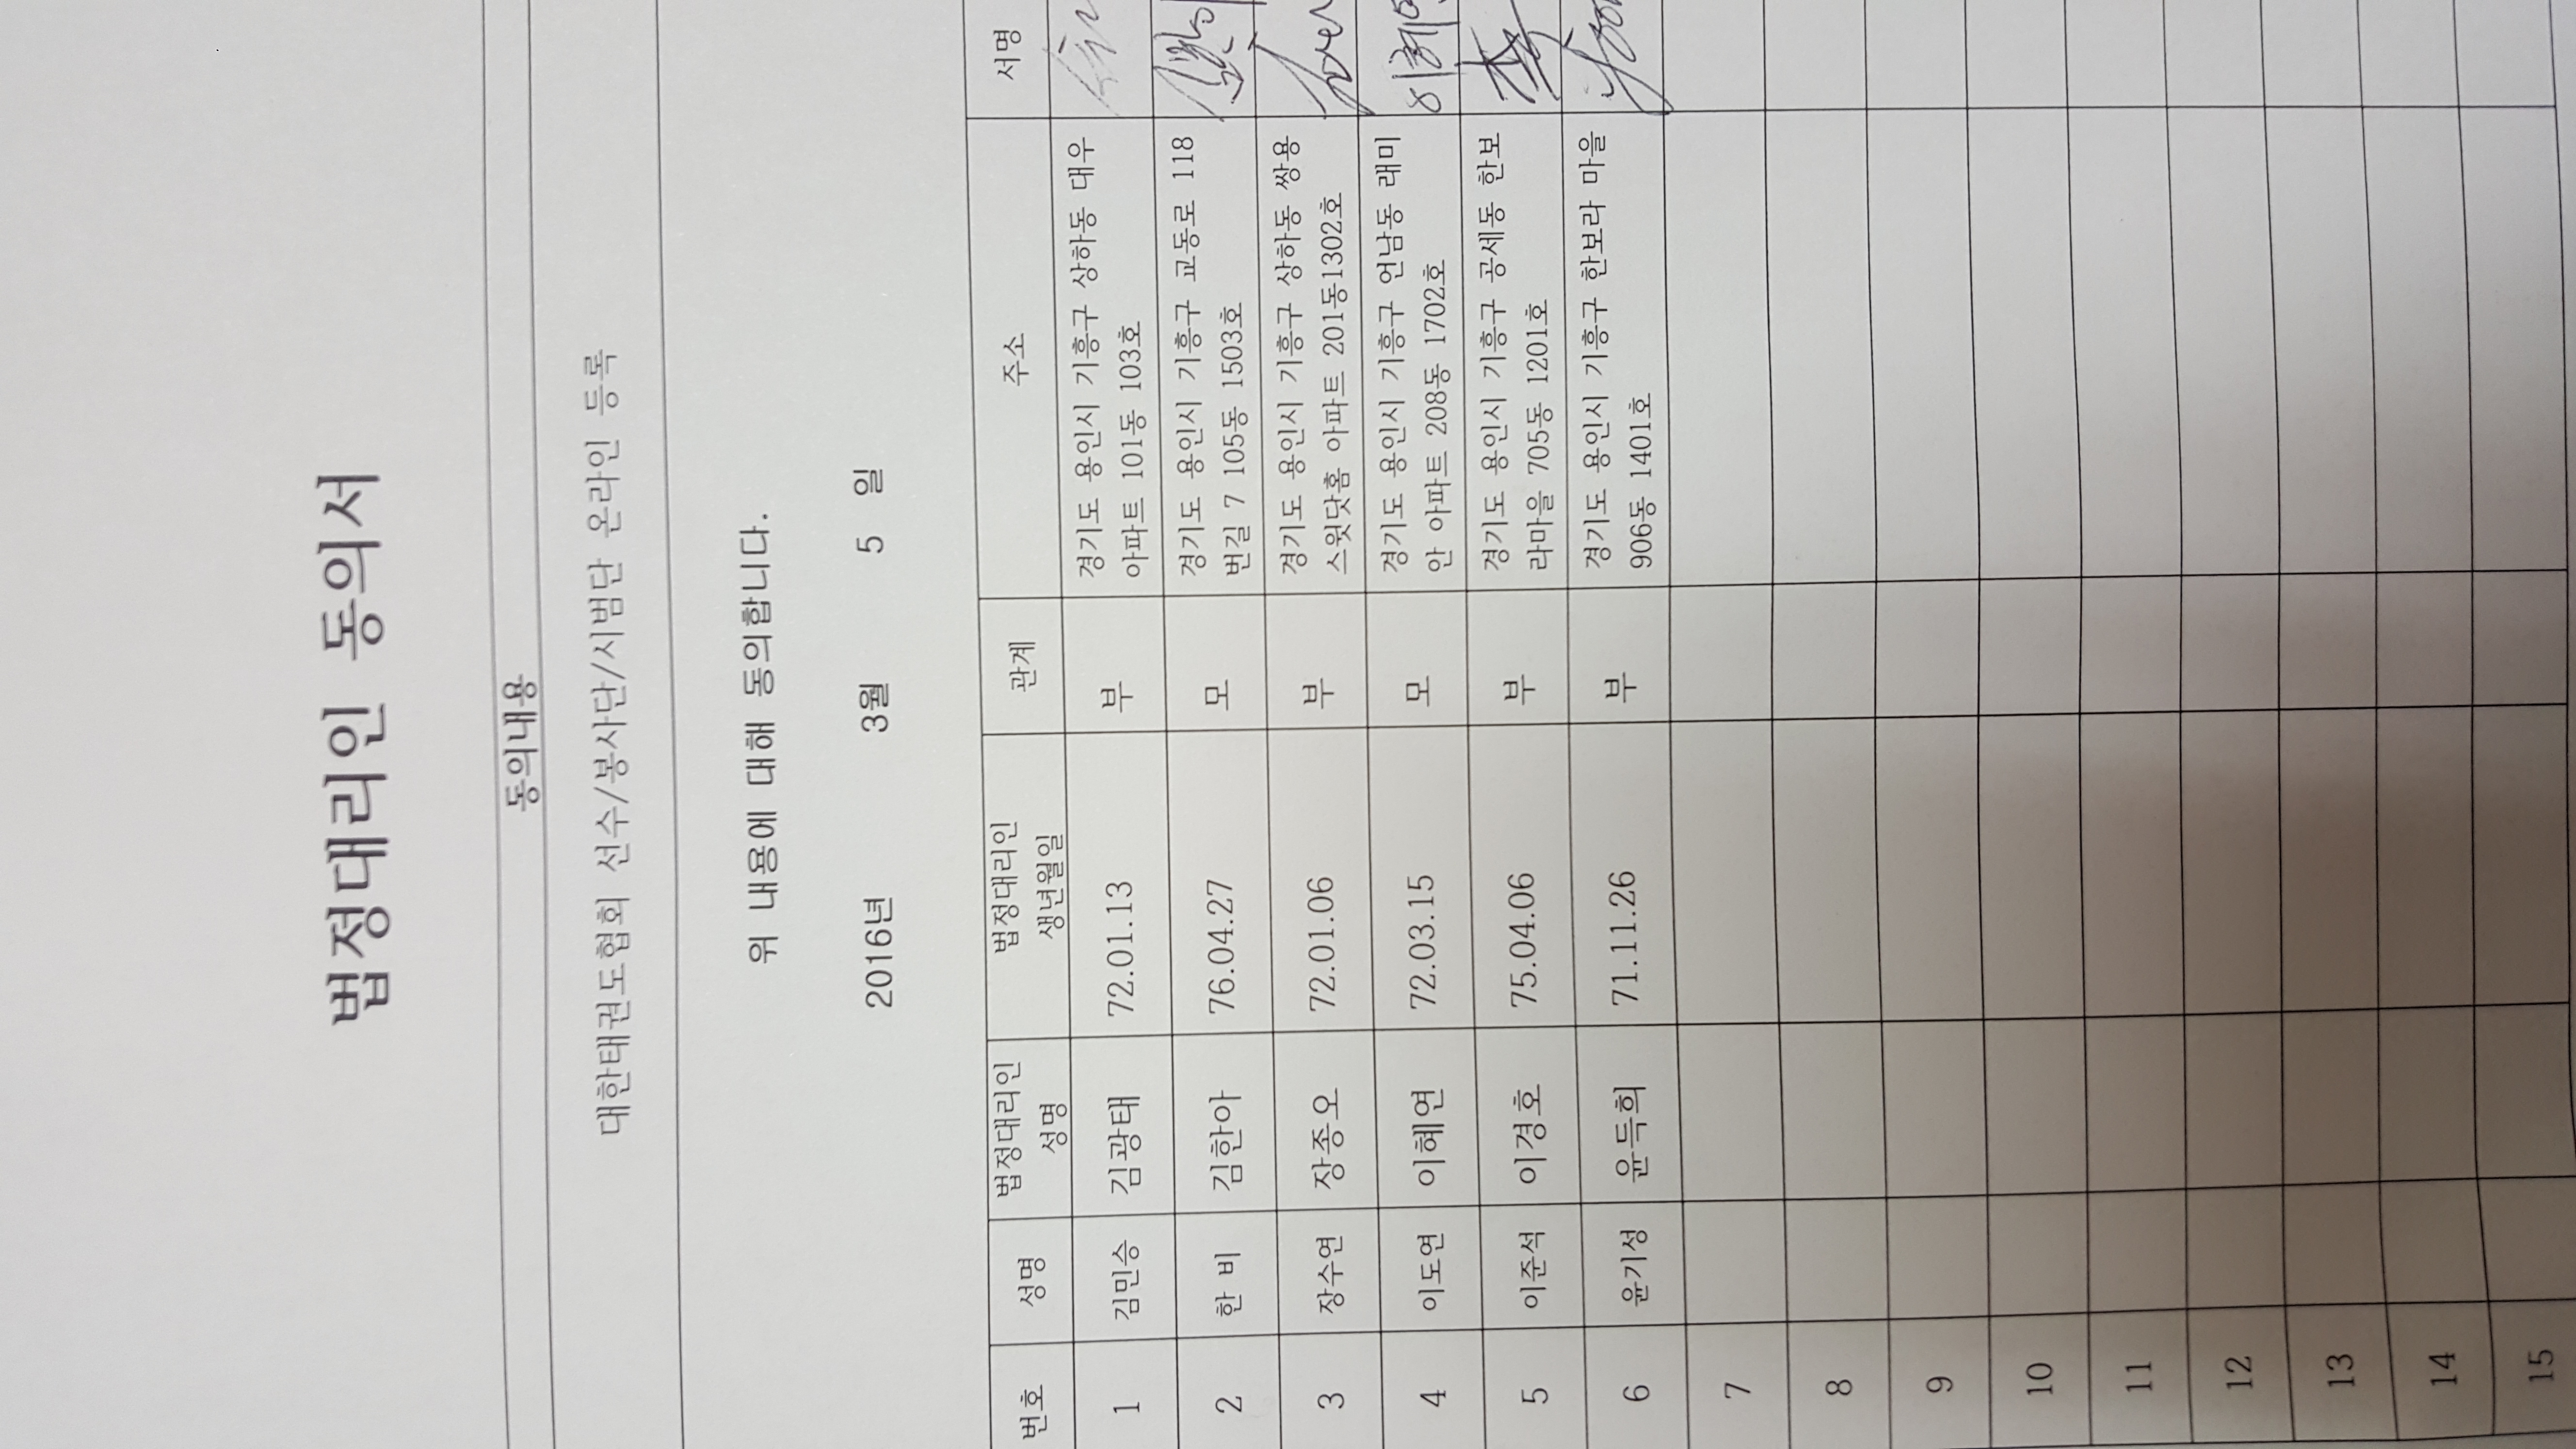 법정대리인 동의서
동의내용
대한태권도협회 선수/봉사단/시범단 온라인 등록
위 내용에 대해 동의합니다.
2016년 3월 5 일
번호 성명 법정대리인 성명 법정대리인 생년월일 관계 주소 서명
1 김민승 김광태 72.01.13 부 경기도 용인시 기흥구 상하동 대우
아파트 101동 103호
2 한 비 김한아 76.04.27 모 경기도 용인시 기흥구 교동로 118
번길 7 105동 1503호
3 장수연 장종오 72.01.06 부 경기도 용인시 기흥구 상하동 쌍용
스윗닷홈 아파트 201동1302호
4 이도연 이혜연 72.03.15 모 경기도 용인시 기흥구 언남동 래미
안 아파트 208동 1702호
5 이준석 이경호 75.04.06 부 경기도 용인시 기흥구 공세동 한보
라마을 705동 1201호
6 윤기성 윤득희 71.11.26 부 경기도 용인시 기흥구 한보라 마을
906동 1401호
7
8
9
10
11
12
13
14
15